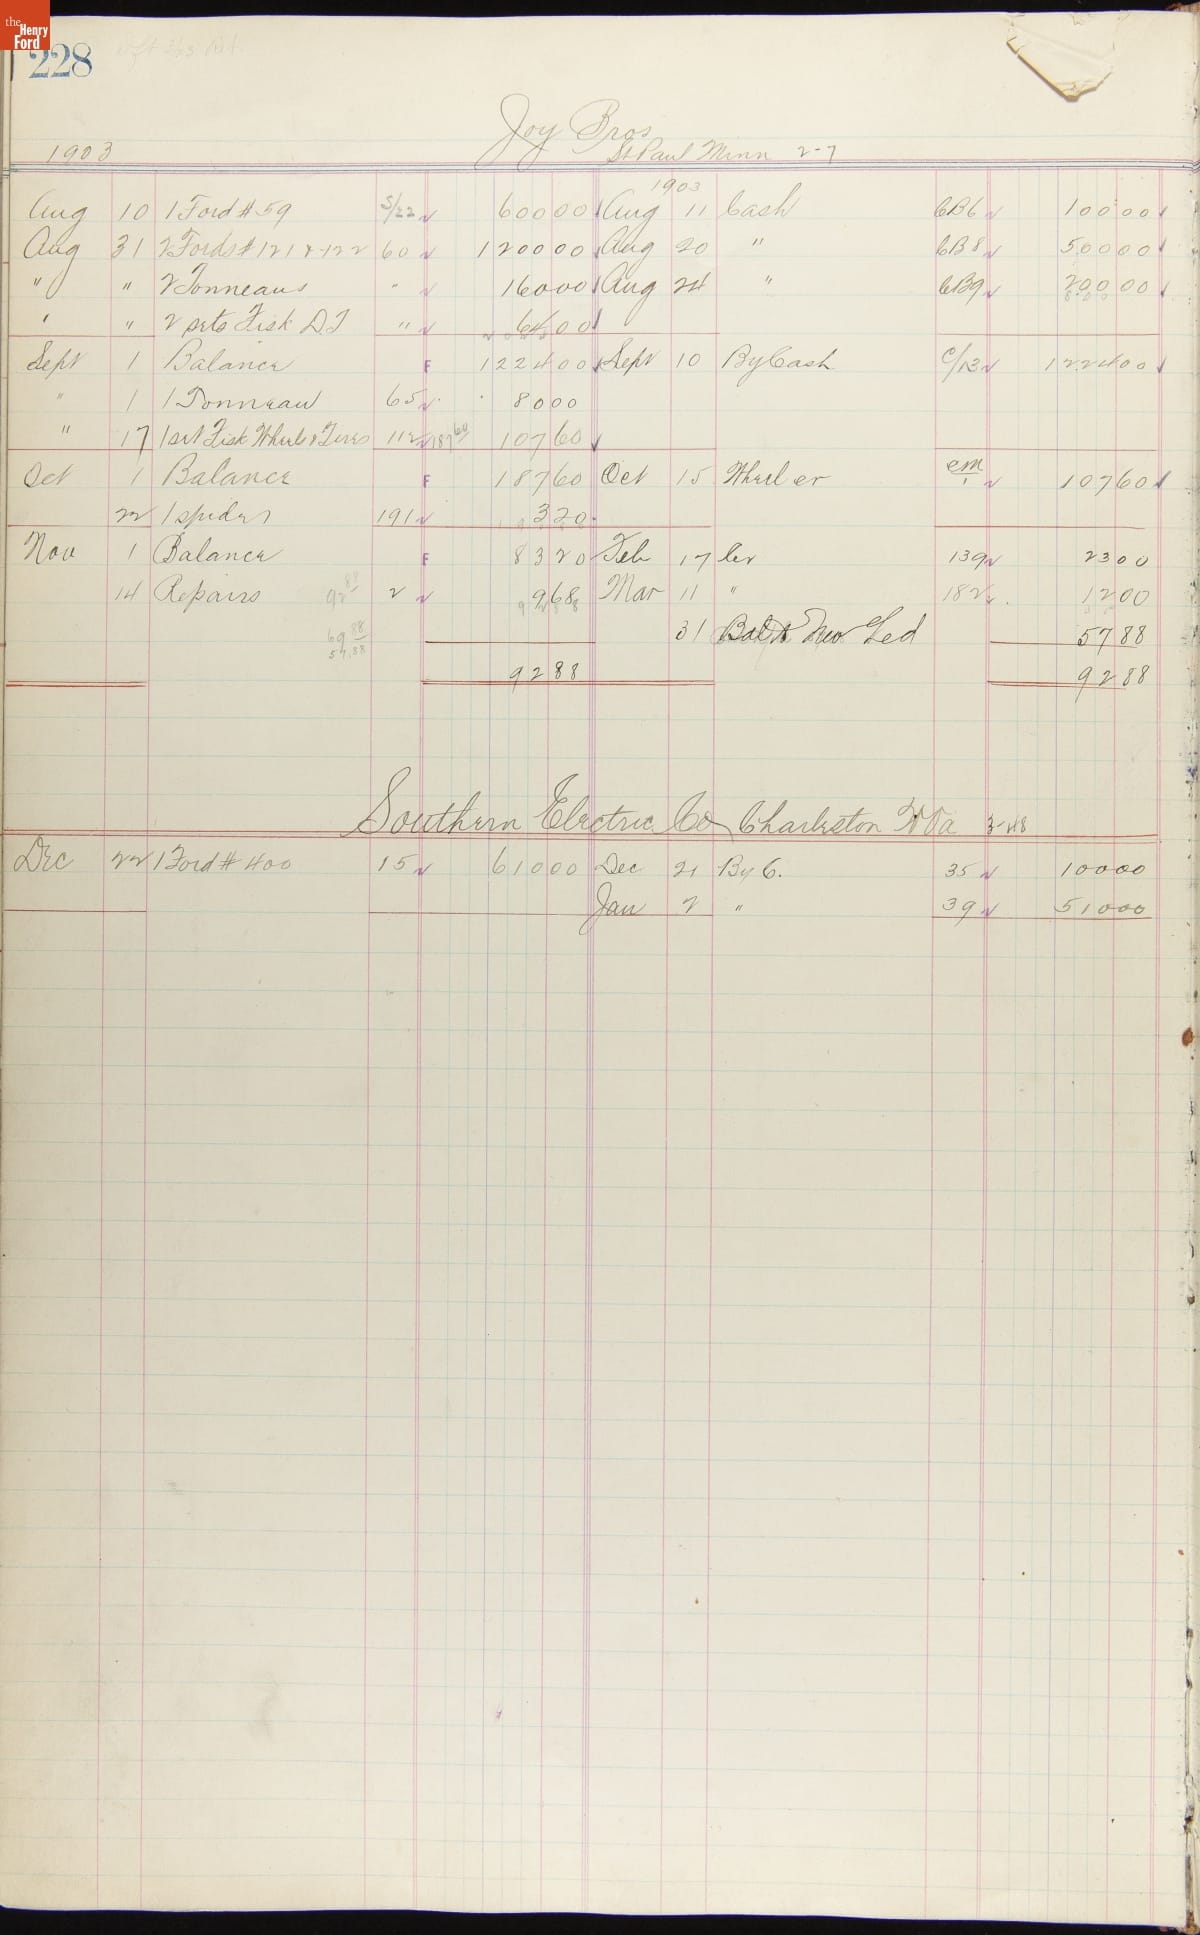 the Henry Ford
228
Joy Bros
1903 St Paul Minn 2-7
1903
Aug 10 1 Ford # 59 S/22 600 00 Aug 11 Cash CB6 100 00
Aug 31 2 Fords # 121 & 122 60 1200 00 Aug 20 " CB8 500 00
" " 2 Tonneaus " 160 00 Aug 24 " CB9 200 00
" " 2 sets Fisk DT " 64 00
Sept 1 Balance F 1224 00 Sept 10 By Cash C/13 1224 00
" 1 1 Tonneau 65 80 00
" 17 1 set Fisk Wheels & Tires 112 187 60 107 60
Oct 1 Balance F 187 60 Oct 15 Wheel er cm/1 107 60
22 1 spider 191 3 20
Nov 1 Balance F 83 20 Feb 17 Cr 139 23 00
14 Repairs 92 88 2 9 68 Mar 11 " 182 12 00
69 88 31 Bal to New Led 57 88
57.88
92 88 92 88
Southern Electric Co Charleston W Va 3-48
Dec 22 1 Ford # 400 15 610 00 Dec 21 By C. 35 100 00
Jan 2 " 39 510 00